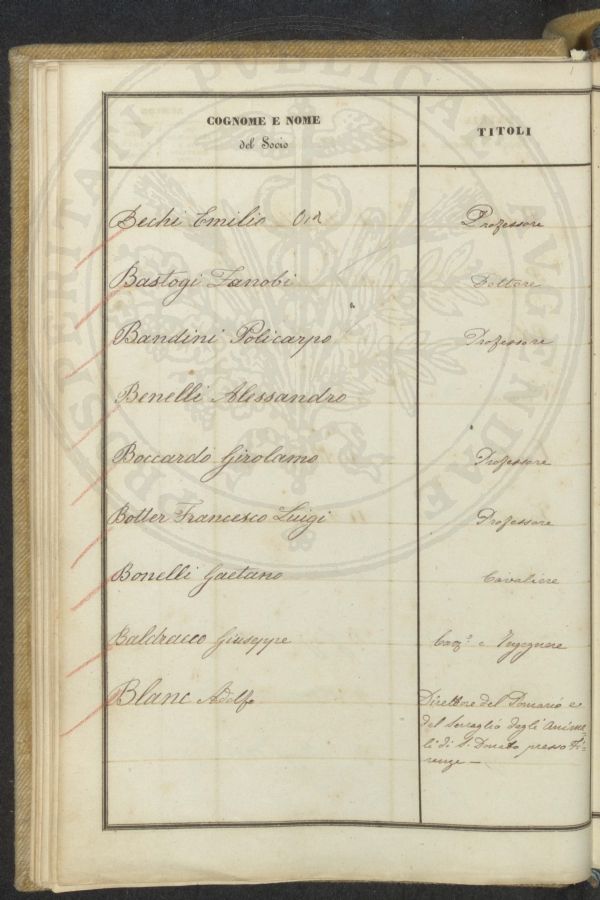 COGNOME E NOME
del Socio
TITOLI
Bechi Emilio Ord
Professore
Bastogi Zanobi
Dottore
Bandini Policarpo
Professore
Benelli Alessandro
Boccardo Girolamo
Professore
Botter Francesco Luigi
Professore
Bonelli Gaetano
Cavaliere
Baldracco Giuseppe
Cav.e e Ingegnere
Blanc Adolfo
Direttore del Pomario e
del Serraglio degli Anima-
li di S. Donato presso Fi-
renze —
PROSPERITATI PUBLICAE AVGENDAE